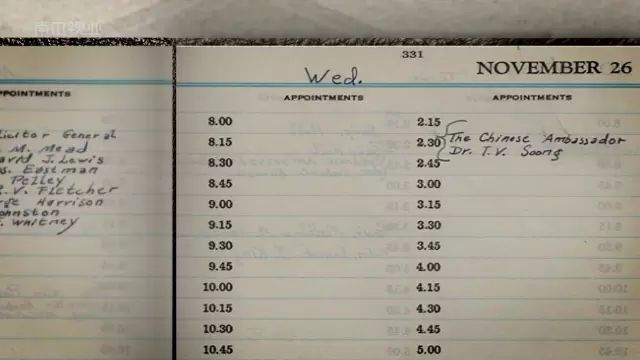 南京视业
331
Wed.
NOVEMBER 26
PPOINTMENTS
APPOINTMENTS
APPOINTMENTS
licitor General
M. Mead
avid J. Lewis
s. Eastman
Pelley
. V. Fletcher
rge Harrison
ohnston
. Whitney
8.00
8.15
8.30
8.45
9.00
9.15
9.30
9.45
10.00
10.15
10.30
10.45
2.15
2.30 The Chinese Ambassador
2.45 Dr. T.V. Soong
3.00
3.15
3.30
3.45
4.00
4.15
4.30
4.45
5.00